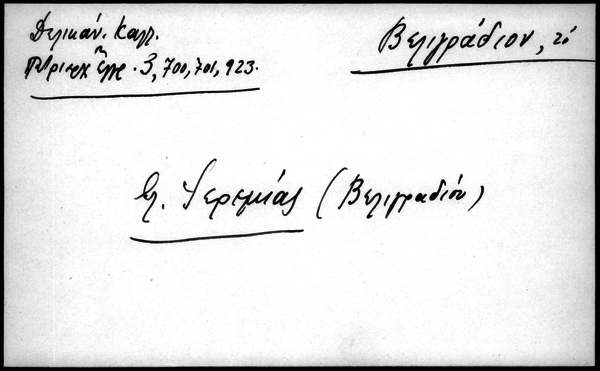 Δελικάν. Καλλ.
Πατριαρχ. Ἔγγρ. 3, 700, 701, 923.
Βελιγράδιον, τό
βλ. Ἱερεμίας (Βελιγραδίου)